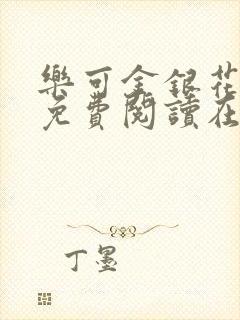 樂可金銀花
免費閱讀在
丁墨